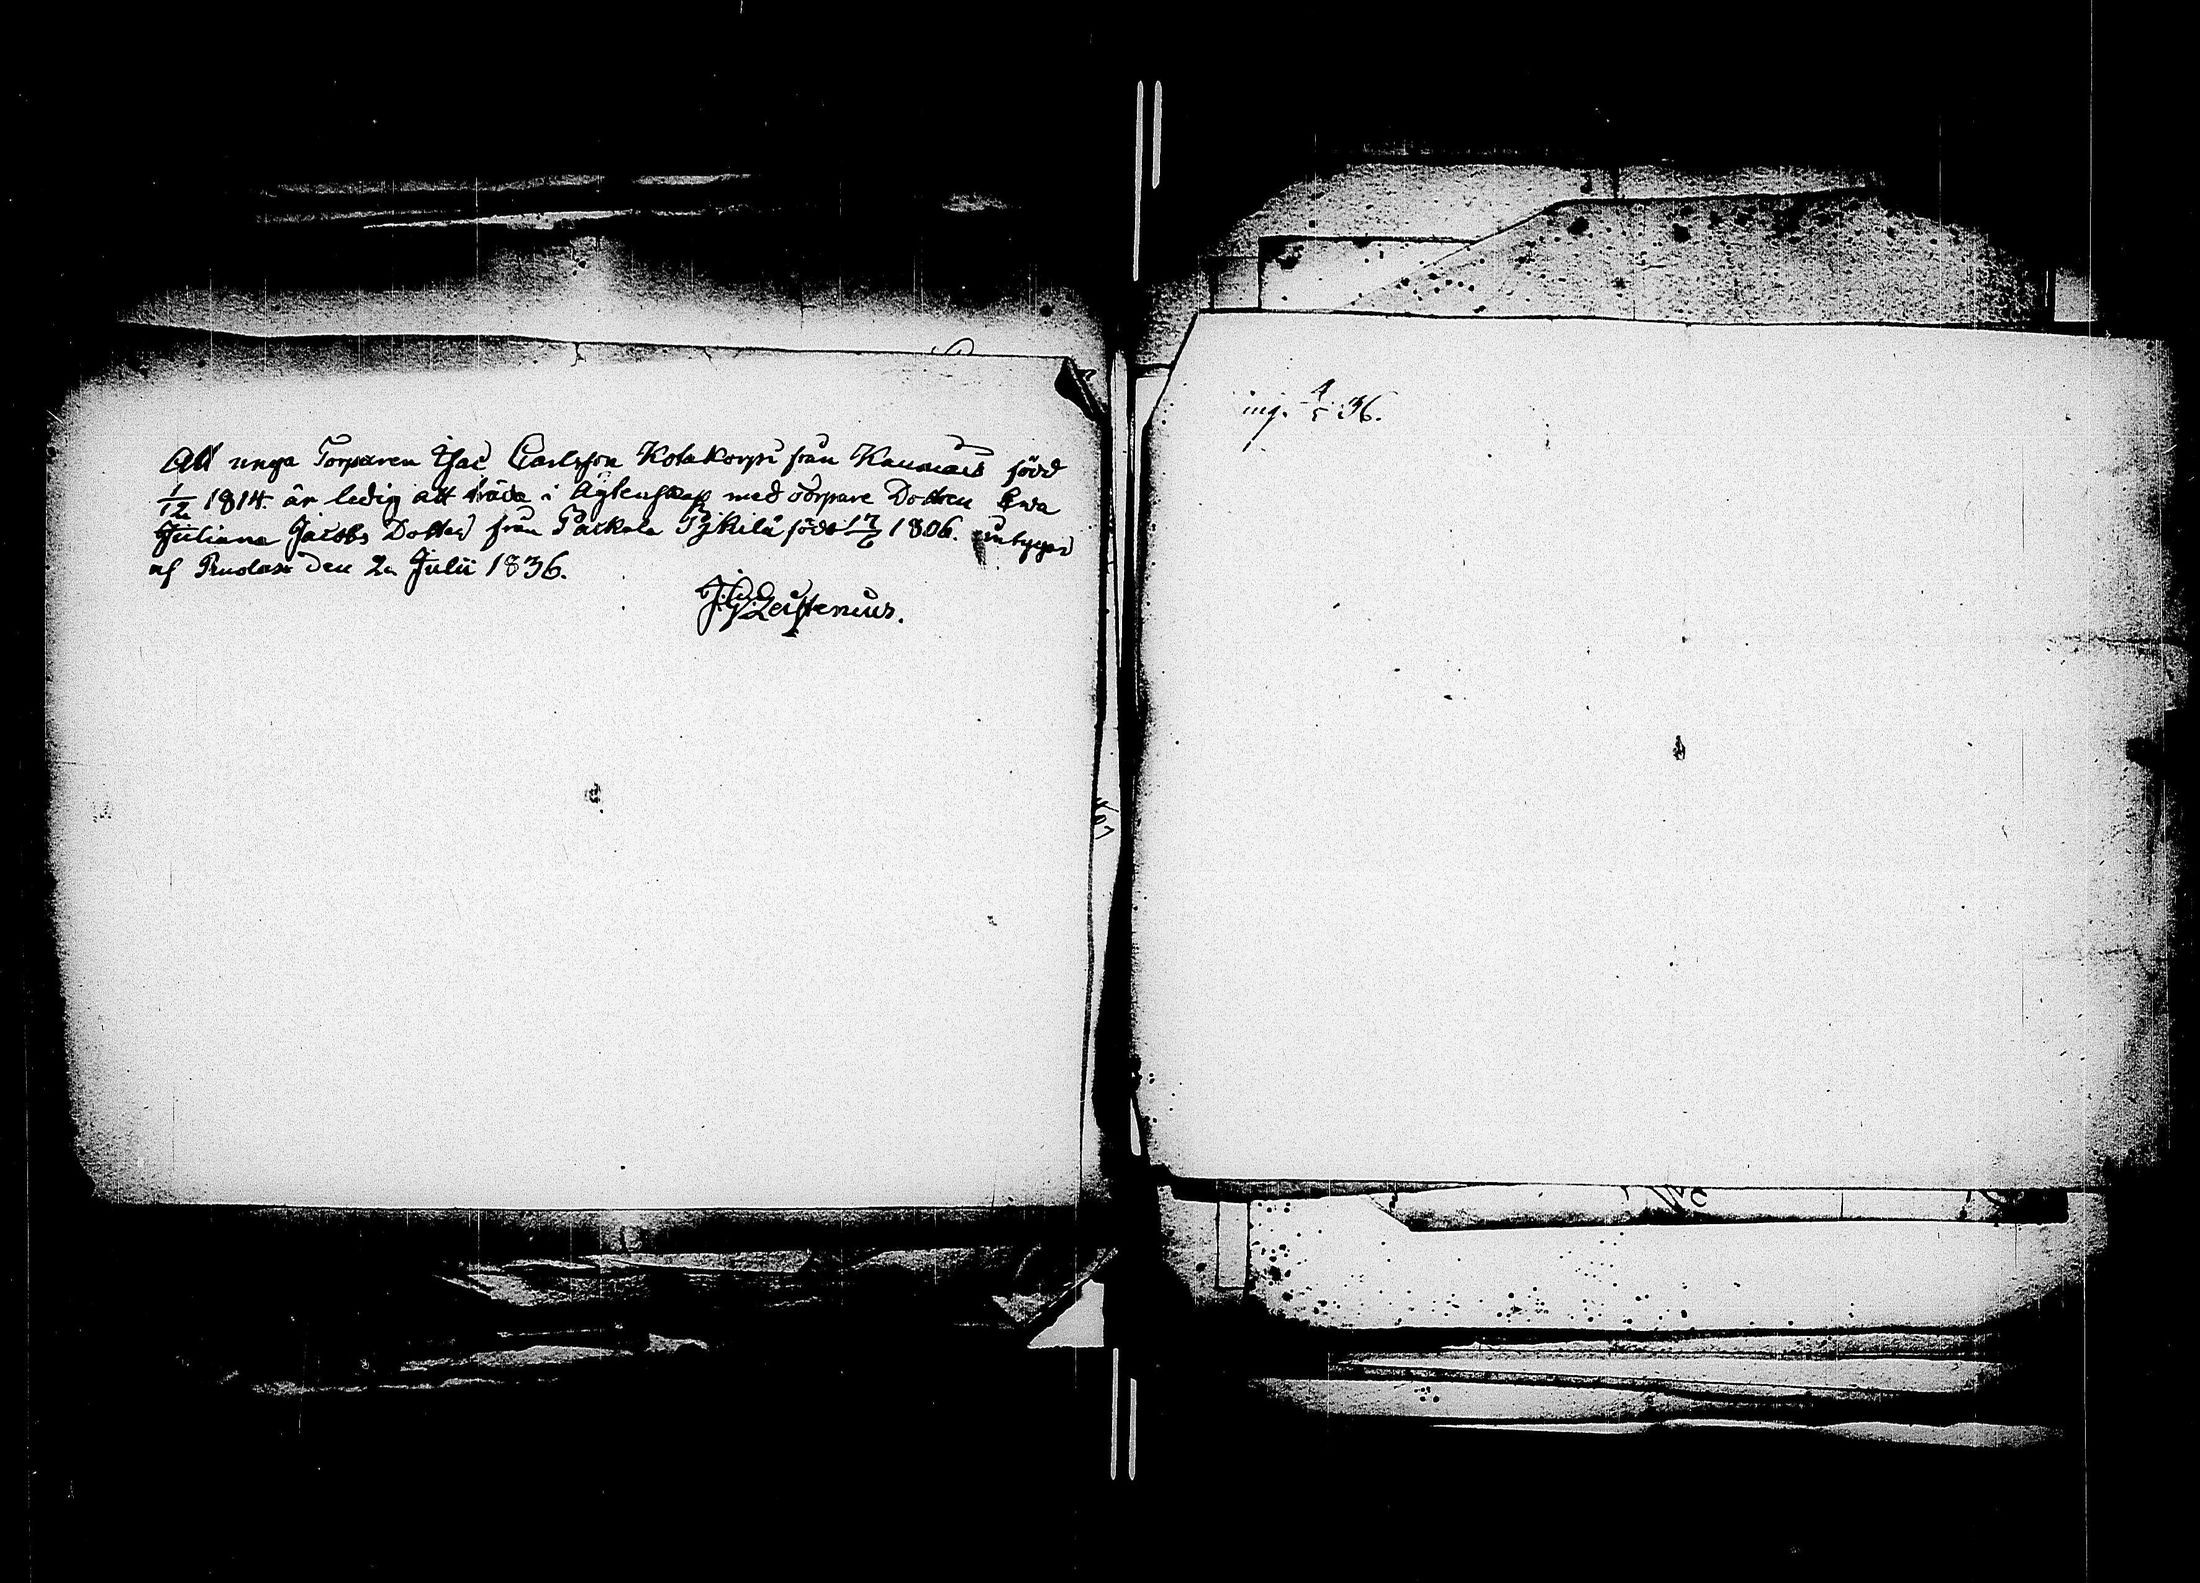 Att unga Torparen Isac Carlsson Kotakorpi från Kaumais född
1/12 1814. är ledig att träda i Ägtenskap med Torpare Dottren Ewa
Juliana Jacobs Dotter från Päckala Pykilä född 17/6 1806. intygar
af Ruolax den 2n Julii 1836.
J. G. Leistenius.
ing. 4/5 36.